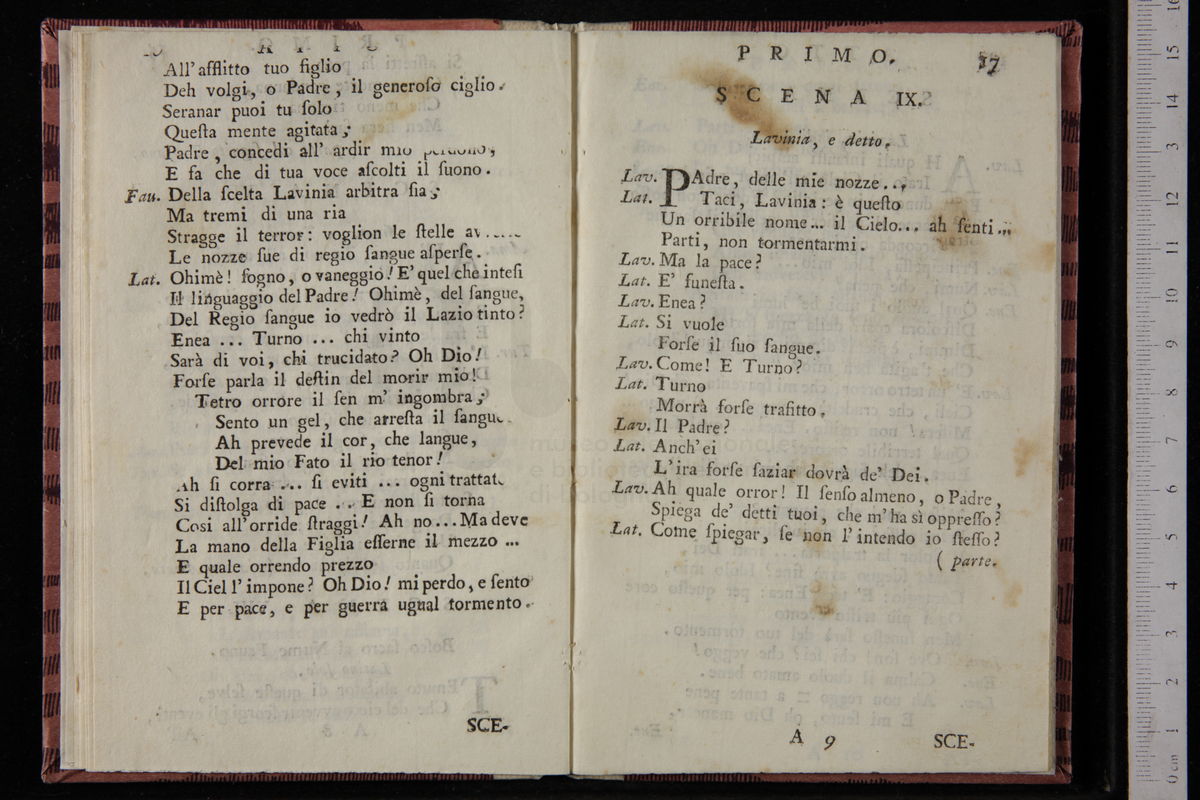 All' afflitto tuo figlio
Deh volgi, o Padre, il generoſo ciglio.
Seranar puoi tu ſolo
Queſta mente agitata;
Padre, concedi all' ardir mio
E fa che di tua voce aſcolti il ſuono.
Fau. Della ſcelta Lavinia arbitra ſia;
Ma tremi di una ria
Stragge il terror: voglion le ſtelle
Le nozze ſue di regio ſangue aſperſe.
Lat. Ohimè! ſogno, o vaneggio! E' quel che inteſi
Il linguaggio del Padre! Ohimè, del ſangue,
Del Regio ſangue io vedrò il Lazio tinto?
Enea ... Turno ... chi vinto
Sarà di voi, chi trucidato? Oh Dio!
Forſe parla il deſtin del morir mio!
Tetro orrore il ſen m' ingombra;
Sento un gel, che arreſta il ſangue.
Ah prevede il cor, che langue,
Del mio Fato il rio tenor!
Ah ſi corra ... ſi eviti ... ogni
Si diſtolga di pace ... E non ſi torna
Cosi all' orride ſtraggi! Ah no... Ma deve
La mano della Figlia eſſerne il mezzo ...
E quale orrendo prezzo
Il Ciel l' impone? Oh Dio! mi perdo, e ſento
E per pace, e per guerra ugual tormento.
SCE-
PRIMO.
17
SCENA IX.
Lavinia, e detto.
Lav. PAdre, delle mie nozze...
Lat. Taci, Lavinia: è queſto
Un orribile nome... il Cielo... ah ſenti...
Parti, non tormentarmi.
Lav. Ma la pace?
Lat. E' funeſta.
Lav. Enea?
Lat. Si vuole
Forſe il ſuo ſangue.
Lav. Come! E Turno?
Lat. Turno
Morrà forſe trafitto.
Lav. Il Padre?
Lat. Anch' ei
L' ira forſe ſaziar dovrà de' Dei.
Lav. Ah quale orror! Il ſenſo almeno, o Padre,
Spiega de' detti tuoi, che m' ha sì oppreſſo?
Lat. Come ſpiegar, ſe non l' intendo io ſteſſo?
( parte.
A 9
SCE-